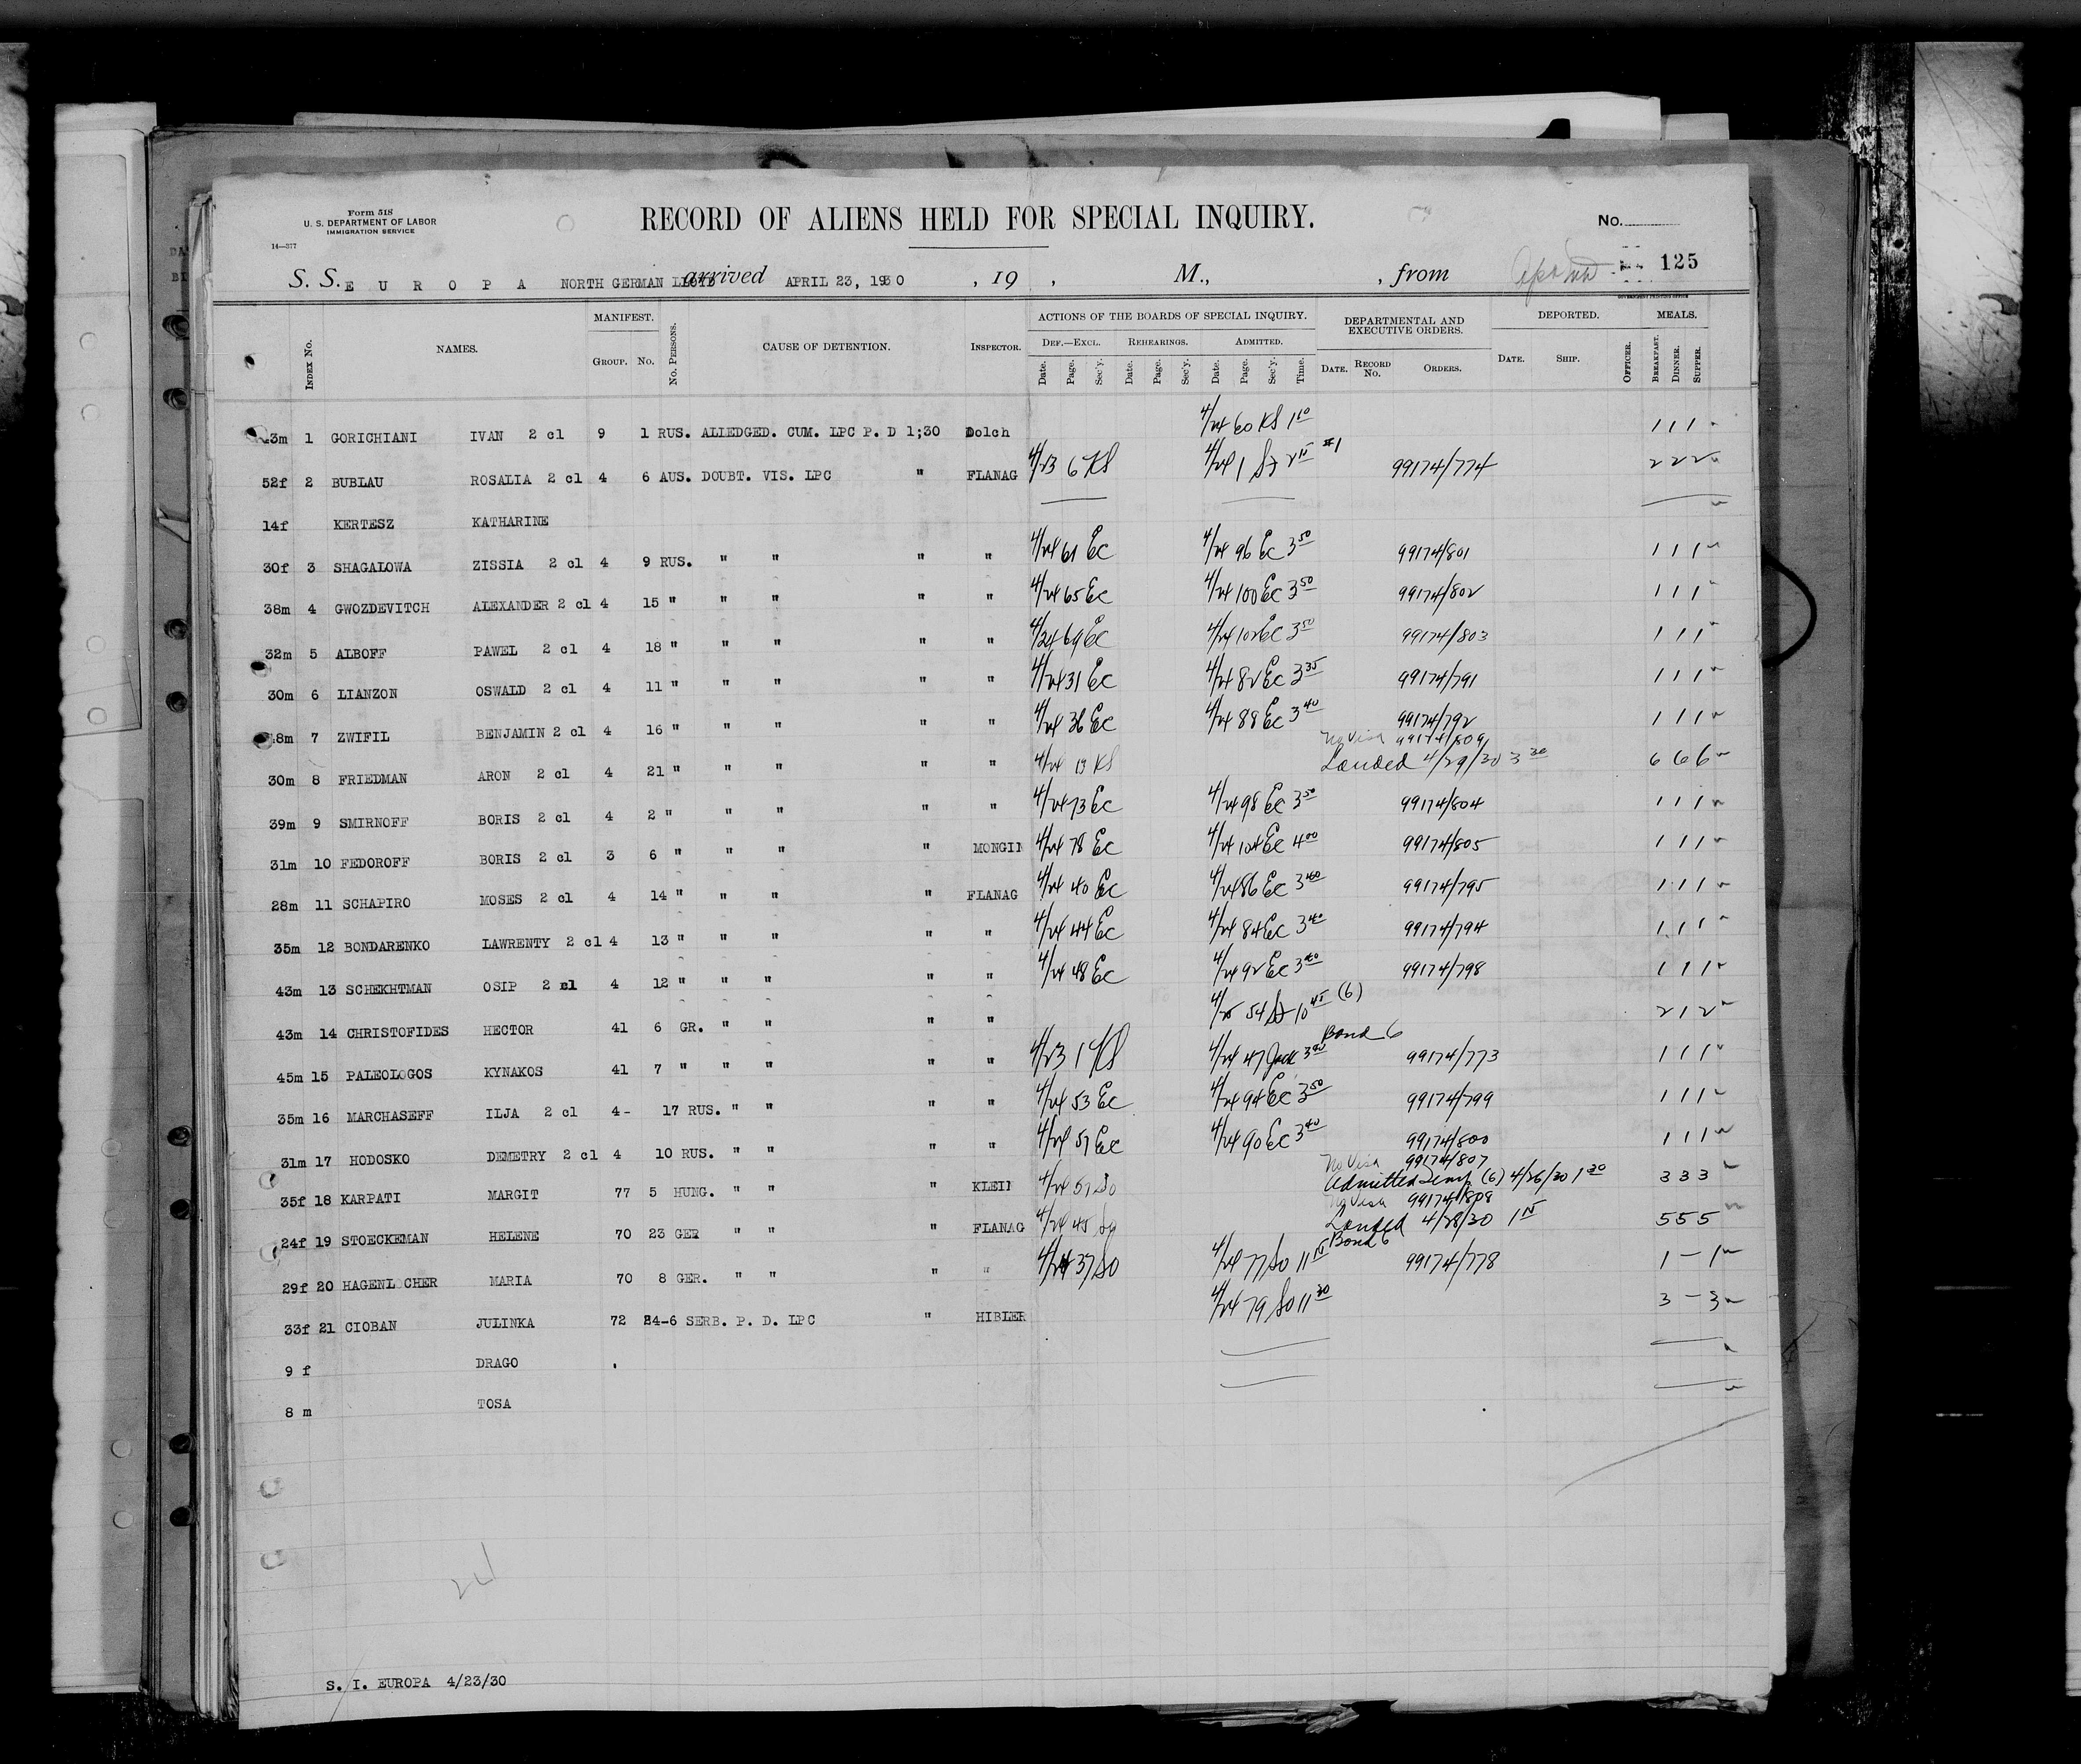 Form 518
U. S. DEPARTMENT OF LABOR
IMMIGRATION SERVICE
14—377
RECORD OF ALIENS HELD FOR SPECIAL INQUIRY.
No.
125
S. S. E U R O P A NORTH GERMAN LLOYD arrived APRIL 23, 1930 , 19 , M., , from
GOVERNMENT PRINTING OFFICE
Index No. NAMES. MANIFEST. Group. No. No. Persons. CAUSE OF DETENTION. Inspector. ACTIONS OF THE BOARDS OF SPECIAL INQUIRY. DEPARTMENTAL AND EXECUTIVE ORDERS. DEPORTED. MEALS.
Def.—Excl. Rehearings. Admitted.
Date. Page. Sec'y. Date. Page. Sec'y. Date. Page. Sec'y. Time. Date. Record No. Orders. Date. Ship. Officer. Breakfast. Dinner. Supper.
43m 1 GORICHIANI IVAN 2 cl 9 1 RUS. ALIEDGED. CUM. LPC P. D 1;30 Dolch 4/24 60 KS 1 10 1 1 1
52f 2 BUBLAU ROSALIA 2 cl 4 6 AUS. DOUBT. VIS. LPC " FLANAG 4/23 6 KS 4/24 1 #1 99174/774 2 2 2
14f KERTESZ KATHARINE
30f 3 SHAGALOWA ZISSIA 2 cl 4 9 RUS. " " " " 4/24 61 EC 4/24 96 EC 3 50 99174/801 1 1 1
38m 4 GWOZDEVITCH ALEXANDER 2 cl 4 15 " " " " " 4/24 65 EC 4/24 100 EC 3 50 99174/802 1 1 1
32m 5 ALBOFF PAWEL 2 cl 4 18 " " " " " 4/24 69 EC 4/24 102 EC 3 50 99174/803 1 1 1
30m 6 LIANZON OSWALD 2 cl 4 11 " " " " " 4/24 31 EC 4/24 82 EC 3 35 99174/791 1 1 1
48m 7 ZWIFIL BENJAMIN 2 cl 4 16 " " " " " 4/24 36 EC 4/24 88 EC 3 40 99174/792 1 1 1
No Visa 99174/809
30m 8 FRIEDMAN ARON 2 cl 4 21 " " " " " 4/24 13 KS Landed 4/29/30 3 30 6 6 6
39m 9 SMIRNOFF BORIS 2 cl 4 2 " " " " " 4/24 73 EC 4/24 98 EC 3 50 99174/804 1 1 1
31m 10 FEDOROFF BORIS 2 cl 3 6 " " " " MONGIN 4/24 78 EC 4/24 104 EC 4 00 99174/805 1 1 1
28m 11 SCHAPIRO MOSES 2 cl 4 14 " " " " FLANAG 4/24 40 EC 4/24 86 EC 3 40 99174/795 1 1 1
35m 12 BONDARENKO LAWRENTY 2 cl 4 13 " " " " " 4/24 44 EC 4/24 84 EC 3 40 99174/794 1 1 1
43m 13 SCHEKHTMAN OSIP 2 cl 4 12 " " " " " 4/24 48 EC 4/24 92 EC 3 40 99174/798 1 1 1
43m 14 CHRISTOFIDES HECTOR 41 6 GR. " " " " 4/25 54 10 45 (6) 2 1 2
Bond 6
45m 15 PALEOLOGOS KYNAKOS 41 7 " " " " " 4/23 1 KS 4/24 47 99174/773 1 1 1
35m 16 MARCHASEFF ILJA 2 cl 4- 17 RUS. " " " " 4/24 53 EC 4/24 94 EC 3 50 99174/799 1 1 1
31m 17 HODOSKO DEMETRY 2 cl 4 10 RUS. " " " " 4/24 57 EC 4/24 90 EC 3 40 99174/800 1 1 1
No Visa 99174/807
35f 18 KARPATI MARGIT 77 5 HUNG. " " " KLEIN 4/24 51 So Admitted Temp (6) 4/26/30 1 30 3 3 3
No Visa 99174/808
24f 19 STOECKEMAN HELENE 70 23 GER " " " FLANAG 4/24 45 Landed 4/28/30 1 15 5 5 5
Bond 6
29f 20 HAGENLOCHER MARIA 70 8 GER. " " " " 4/24 37 So 4/24 77 So 11 15 99174/778 1 – 1
33f 21 CIOBAN JULINKA 72 24-6 SERB. P. D. LPC " HIBLER 4/24 79 So 11 30 3 – 3
9 f DRAGO
8 m TOSA
S. I. EUROPA 4/23/30